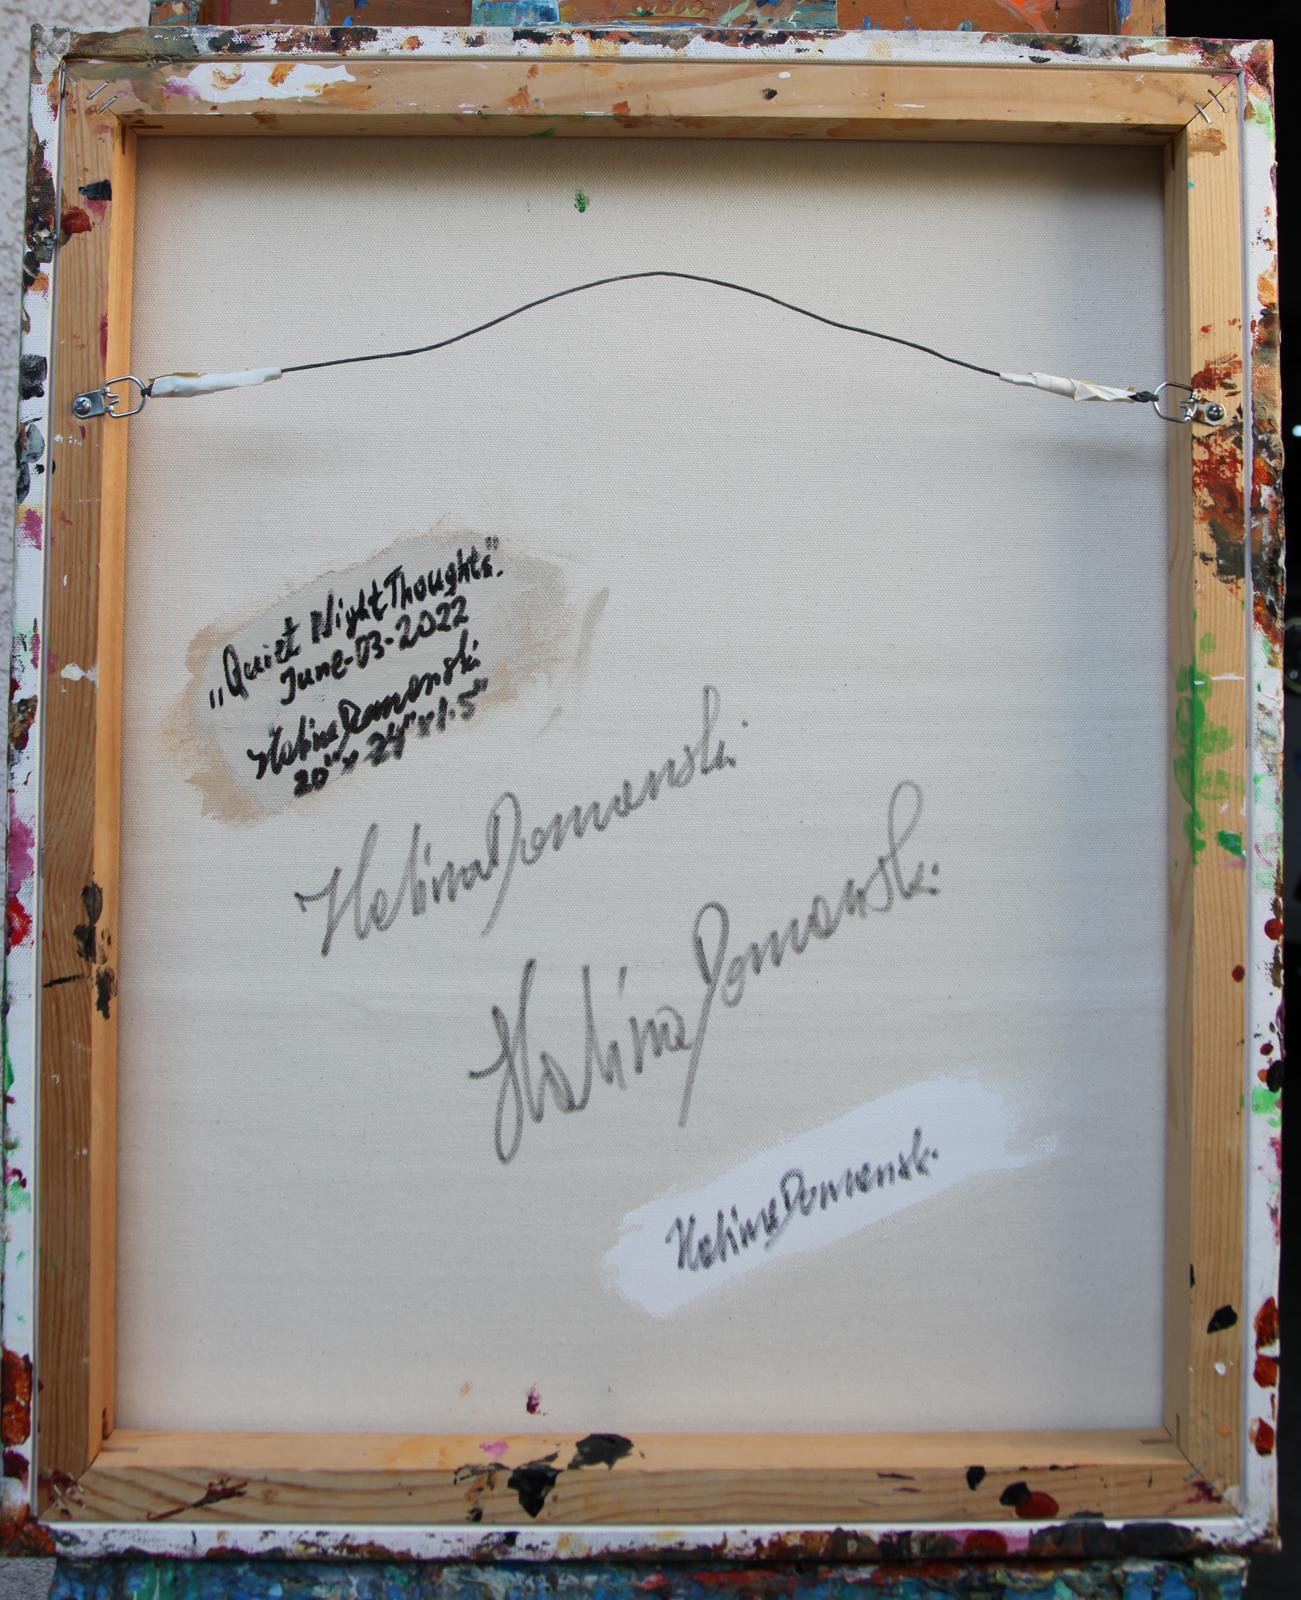 „Quiet Night Thoughts".
June-03-2022
Halina Domanski
20" x 24" x 1.5"
Halina Domanski.
Halina Domanski.
Halina Domanski.